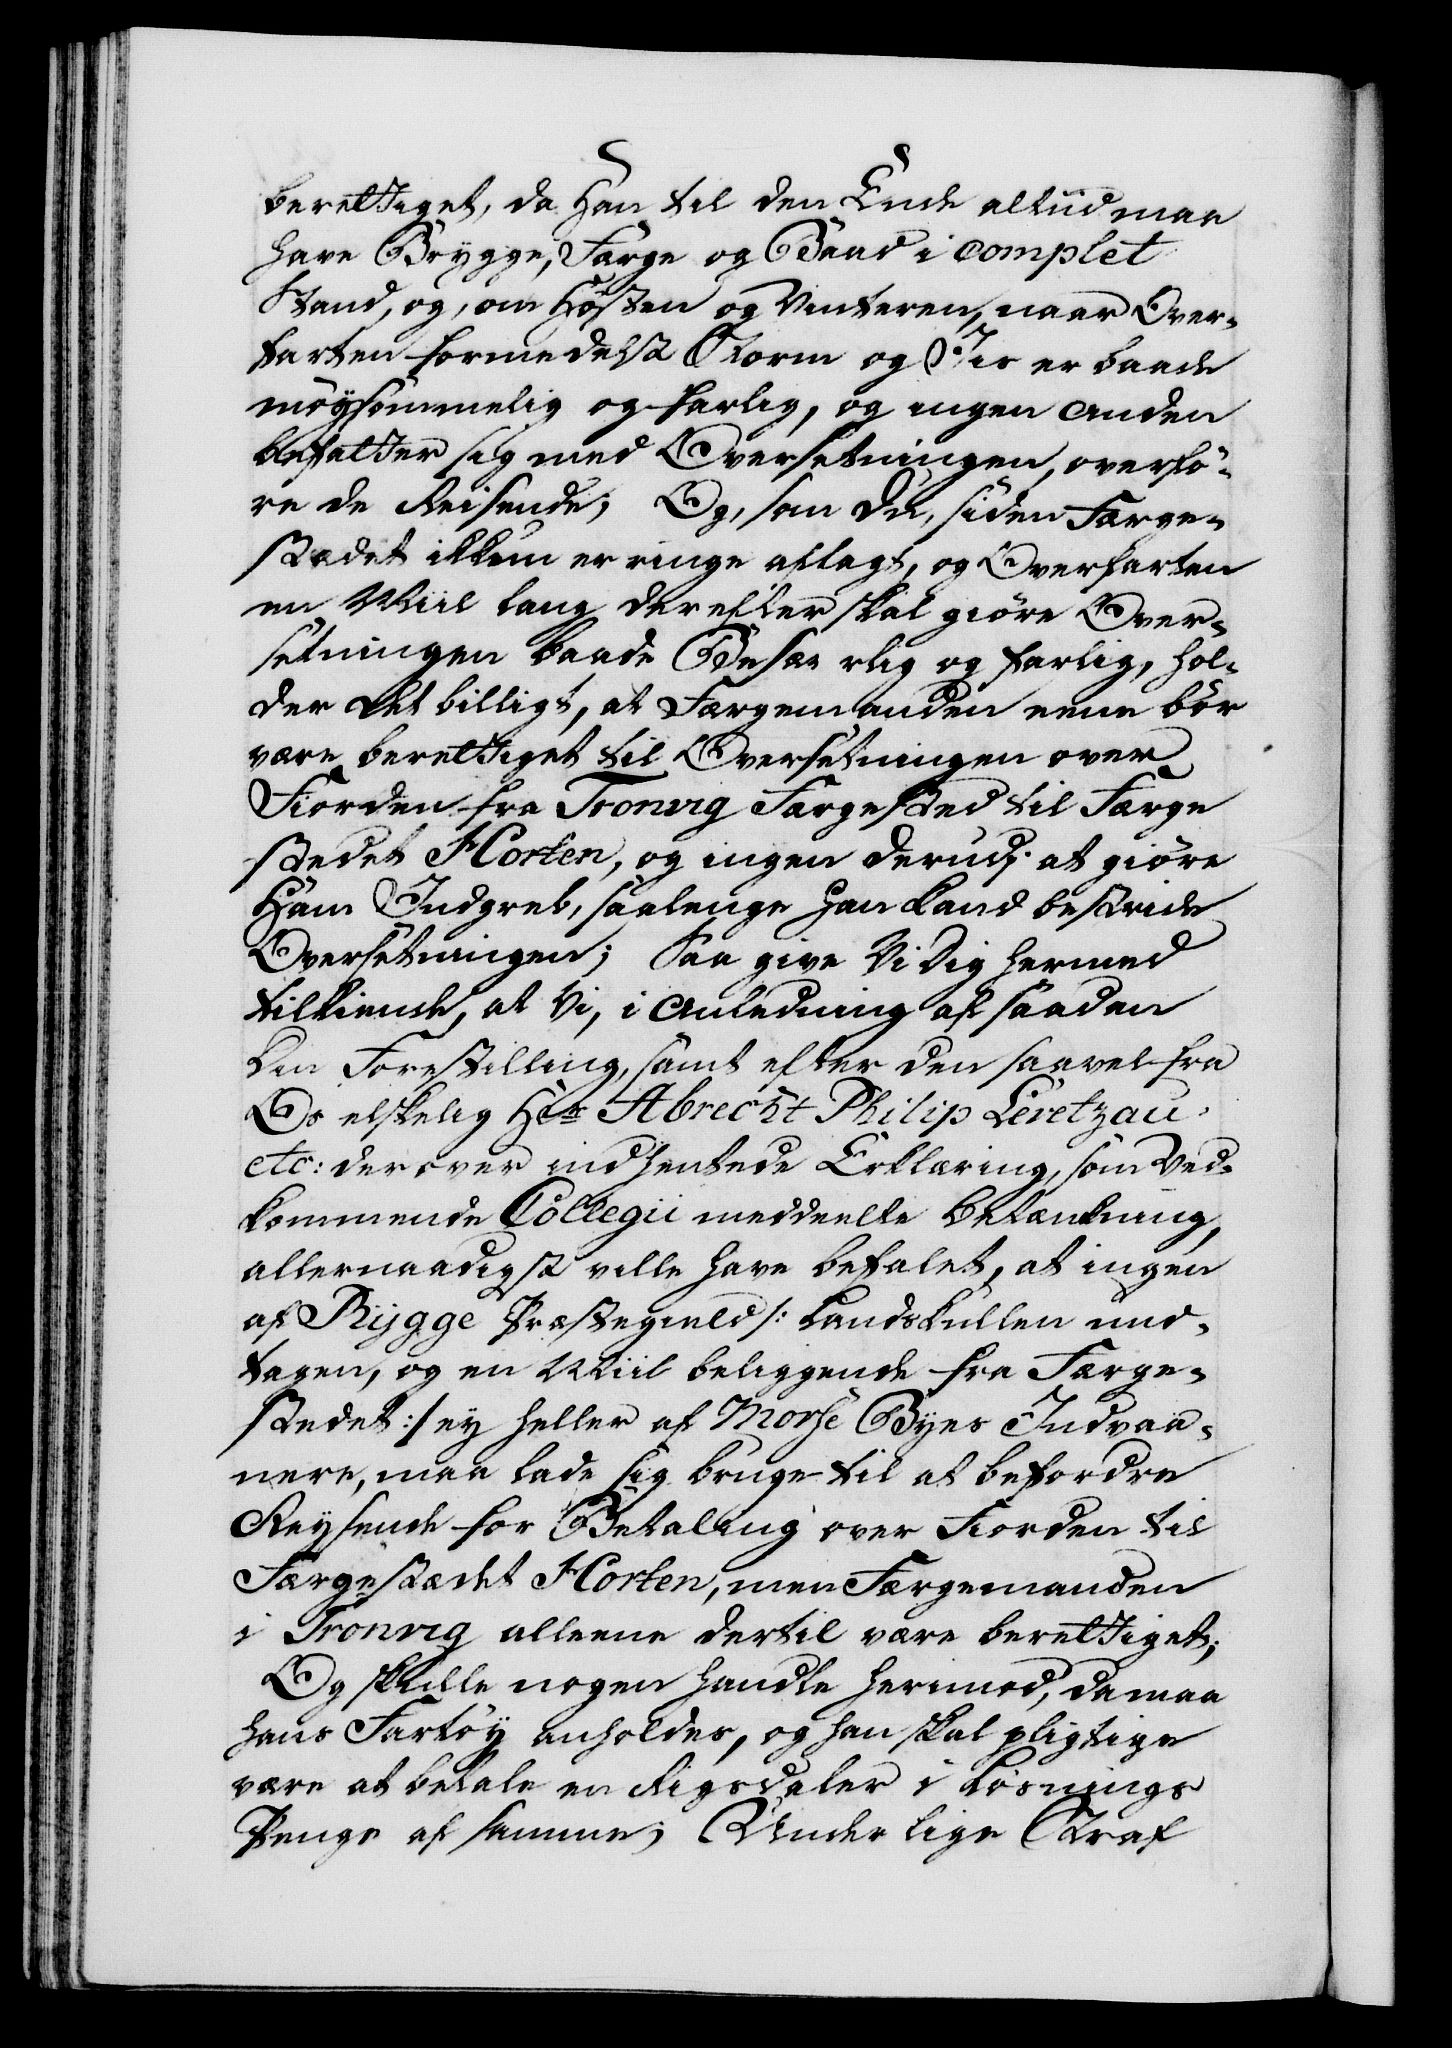 berettiget, da Han til den Ende altiid maa
have Brygge, Færge og Baad i complet
Stand, og, om Høsten og Vinteren, naar Over-
farten formedelst Storm og Iis er baade
møysommelig og farlig, og ingen anden
befatter sig med Oversetningen, overfø-
re de Reisende; Og, som Du, siden Færge-
stædet ikkun er ringe aflagt, og Overfarten
en Miil lang, derefter skal giøre Over-
setningen baade Besværlig og farlig, hol-
der det billigt, at Færgemanden eene bør
være berettiget til Oversetningen over
Fiorden fra Tronvig Færgested til Færge
stedet Horten, og ingen derudj at giøre
Ham Indgreb, saalenge han kand bestride
Oversetningen; Saa give Vi Dig hermed
tilkiende, at Vi, i Anledning af saaden
Din Forestilling, samt efter den saavel fra
Os elskelig Hr Abrecht Philip Levetzau
etc: derover indhentede Erklæring, som Ved-
kommende Collegii meddeelte Betænkning,
allernaadigst ville have befalet, at ingen
af Rygge Præstegield /: Landskullen und-
tagen, og en Miil beliggende fra Færge-
stedet :/ ey heller af Morse Byes Indvaa-
nere, maa lade sig bruge til at befordre
Reysende for Betaling over Fiorden til
Færgestædet Horten, men Færgemanden
i Tronvig alleene dertil være berettiget;
Og skulle nogen handle herimod, da maa
hans Fartøy anholdes, og han skal pligtige
være at betale en Rigsdaler i Løsnings
Penge af samme; Under lige Straf